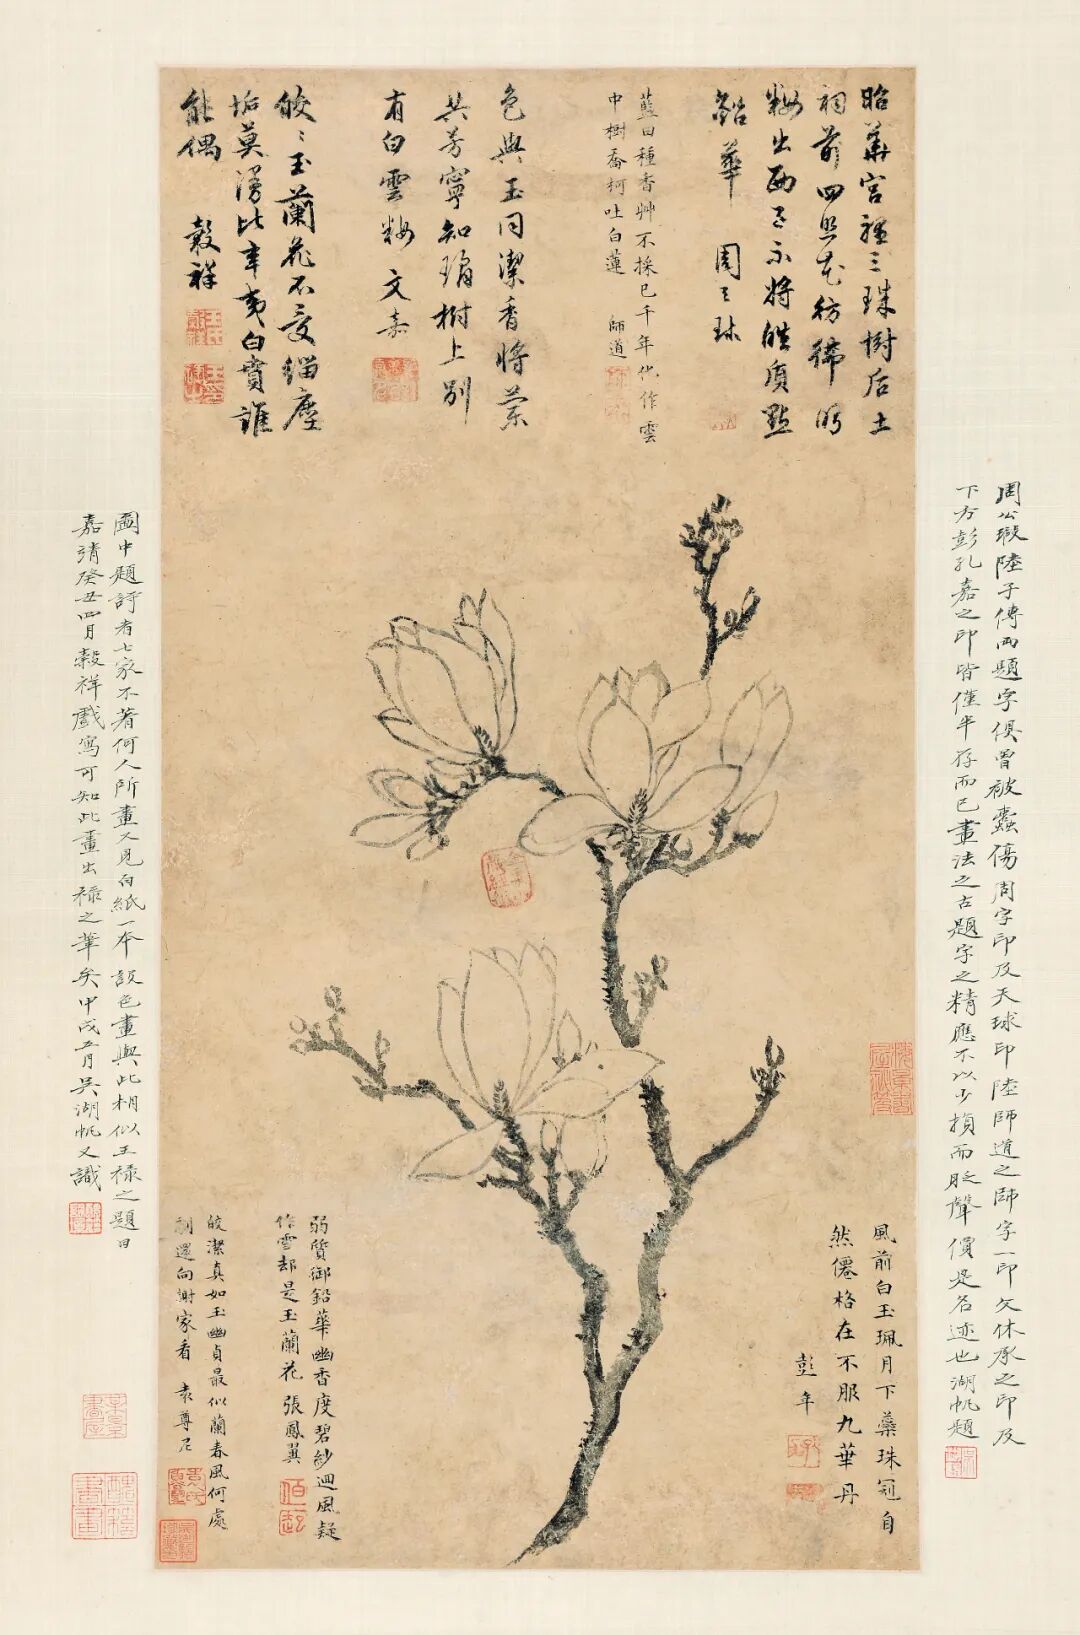 周公瑕陸子傳兩題字俱曾被蠹傷周字印及天球印陸師道之師字一印文休承之印及
下方彭孔嘉之印皆僅半存而已畫法之古題字之精應不以少損而貶聲價是名迹也湖帆題
昭華宮裡三珠樹后土
祠前四照花彷彿所
粉出西子不將皓質點
鉛華 周天球
藍田種香艸不採已千年化作雲
中樹喬柯吐白蓮 師道
色與玉同潔香將蘭
共芳寧知瓊樹上別
有白雲粧 文嘉
皎皎玉蘭花不受緇塵
垢莫漫比辛夷白賁誰
能偶 穀祥
風前白玉珮月下蘂珠冠自
然僊格在不服九華丹
彭年
弱質御鉛華幽香度碧紗迴風疑
作雪却是玉蘭花 張鳳翼
皎潔真如玉幽貞最似蘭春風何處
別還向謝家看 袁尊尼
圖中題詩者七家不著何人所畫又見白紙一本設色畫與此相似王祿之題曰
嘉靖癸丑四月穀祥戲寫可知此畫出祿之筆矣甲戌五月吳湖帆又識